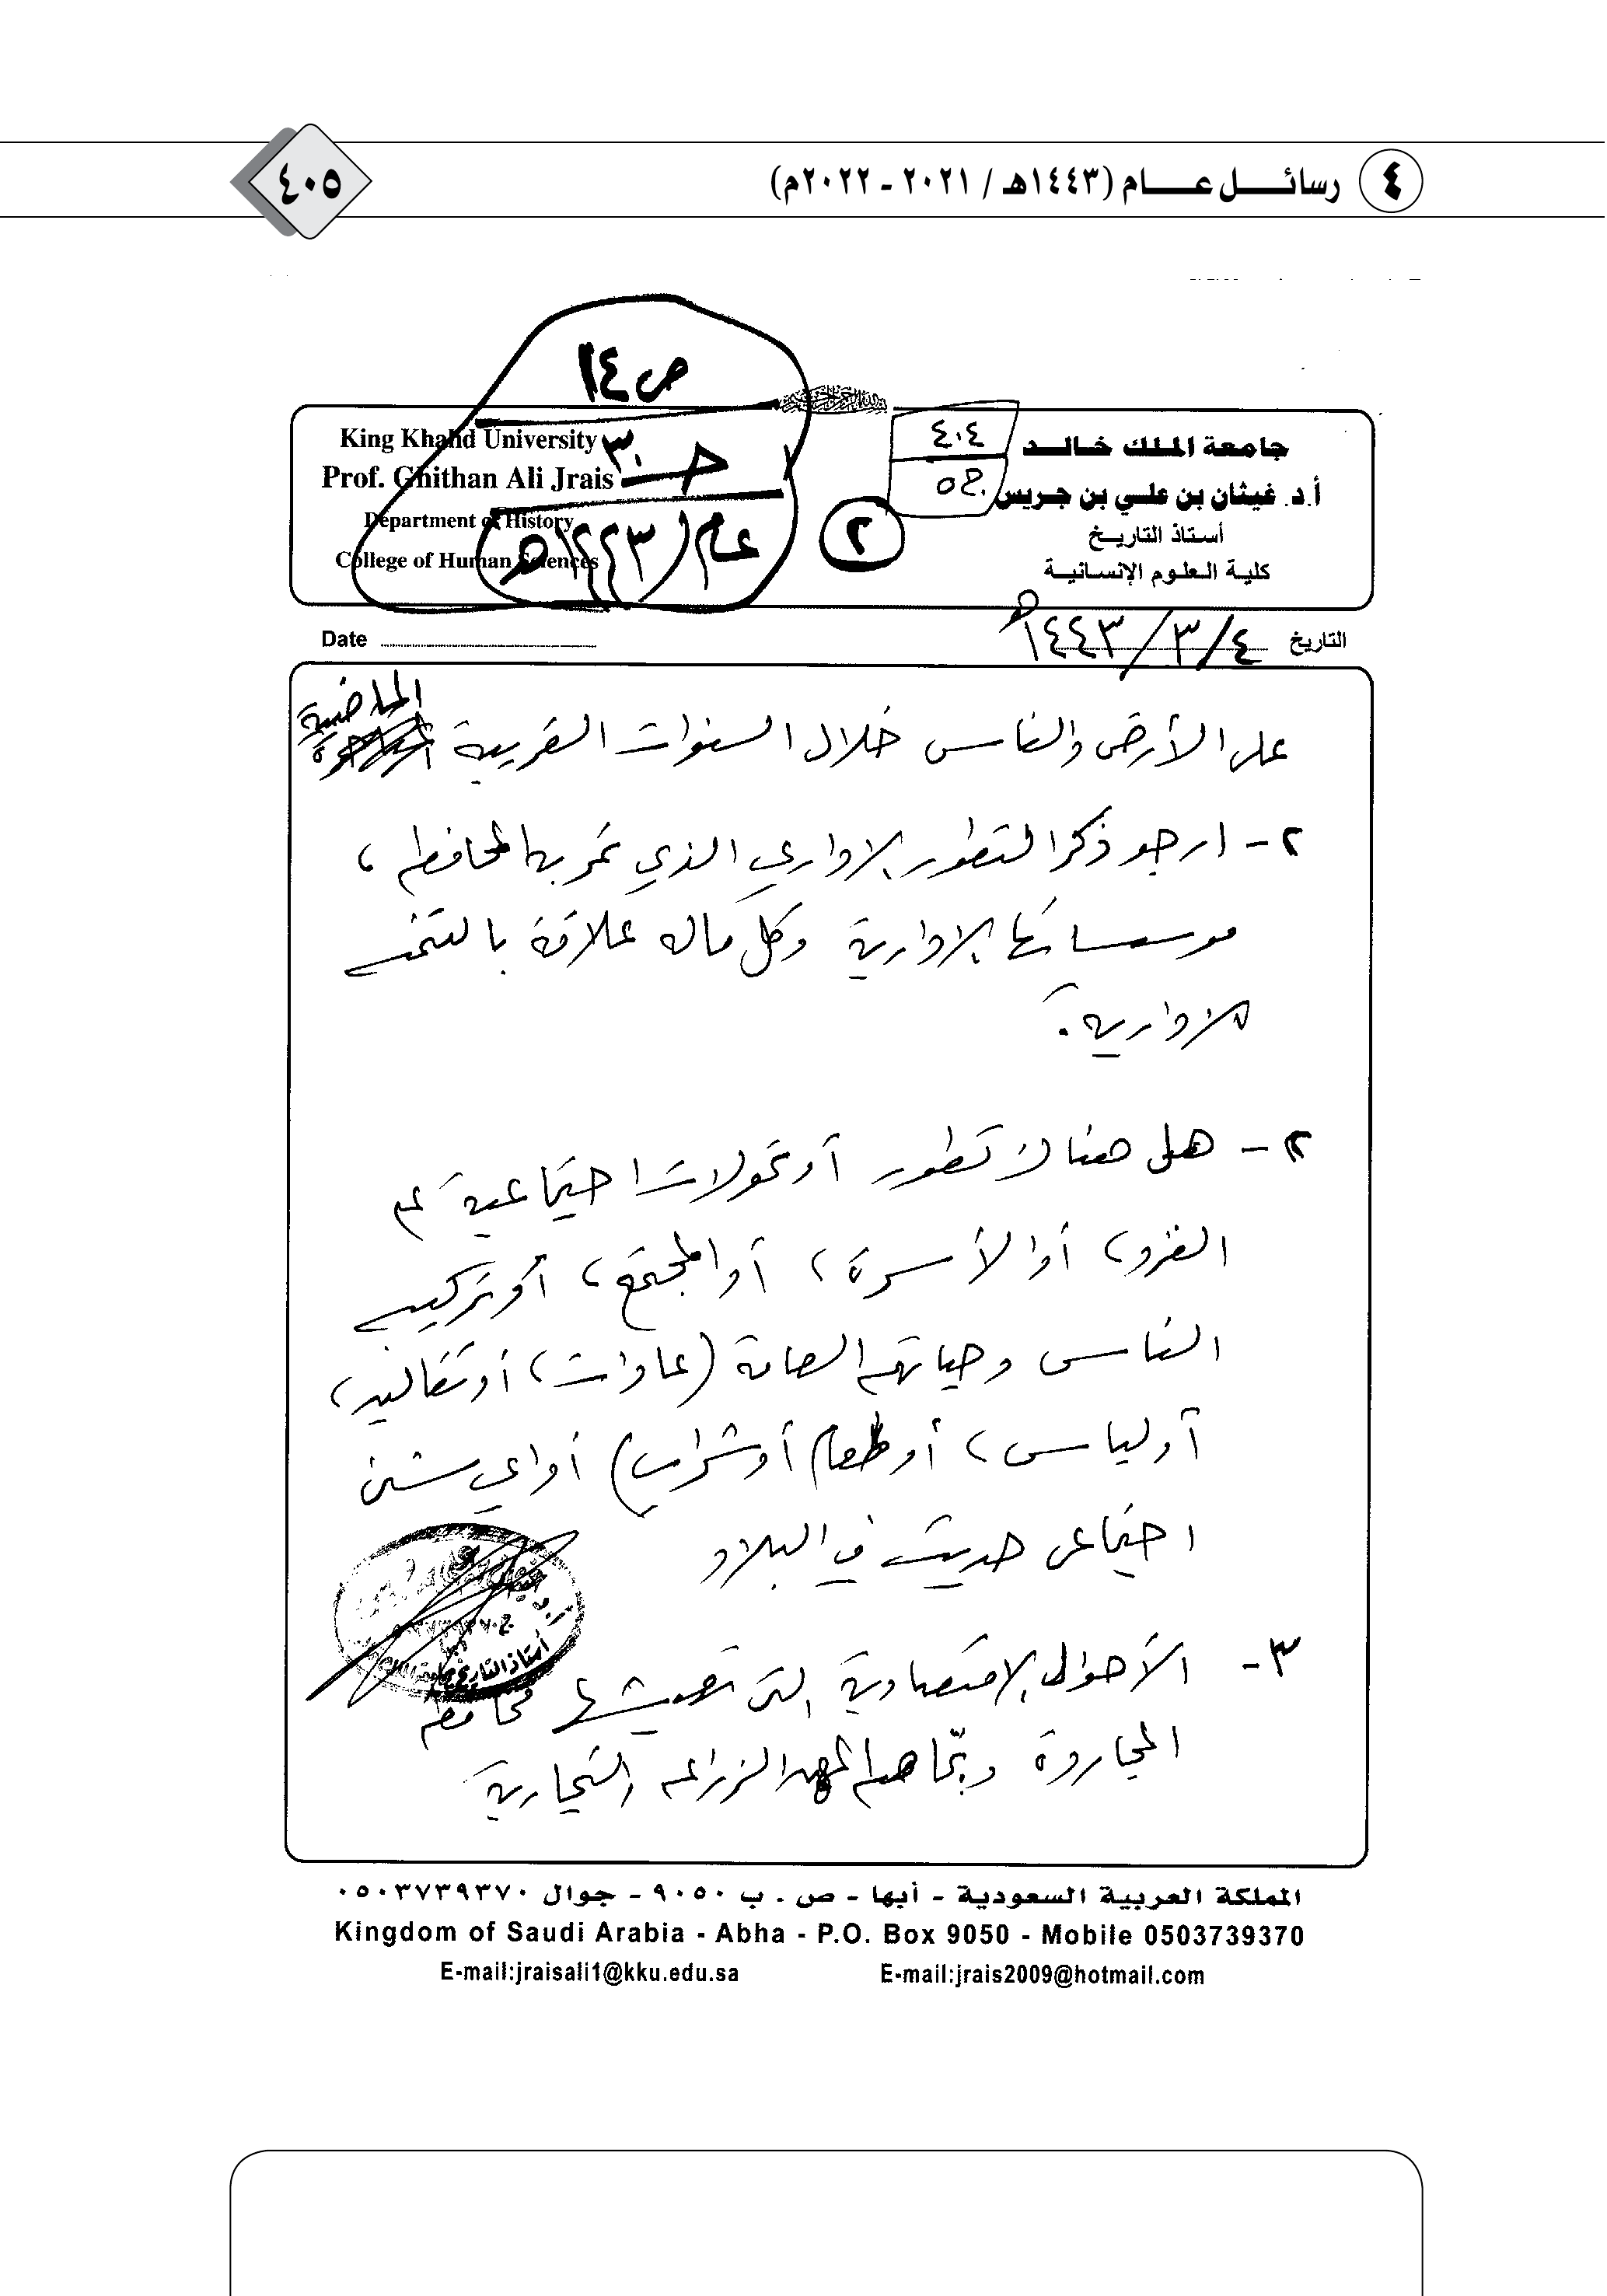 ٤ رسائل عام (١٤٤٣هـ / ٢٠٢١ - ٢٠٢٢م)
٤٠٥
ص ١٤
ج ٣٠
عام (١٤٤٣هـ)
٤٠٤
٢
جامعة الملك خالد
أ.د. غيثان بن علي بن جريس
أستاذ التاريخ
كلية العلوم الإنسانية
King Khalid University
Prof. Ghithan Ali Jrais
Department of History
College of Human Sciences
التاريخ ٤/٣/١٤٤٣هـ
Date
على الأرض والناس خلال السنوات القريبة الماضية
٢- ارجو ذكر التطور الاداري الذي تمر بها المحافظة،
موسساتها الادارية وكل ماله علاقة بالتنمية
الادارية.
٢- هل هناك تطور أو تحولات اجتماعية عم
الفرد، أو الأسرة، أو المجتمع، أو تركيبة
الناس وحياتهم العامة (عادات، أو تقاليد،
أو لباس، أو طعام أو شراب) أو اي شئ
اجتماعي حديث في البلاد
٣- الأحوال الاقتصادية التي تعيشها محافظة
المجاردة وتجاهها المهن الزراعة التجارية
أستاذ التاريخ
المملكة العربية السعودية - أبها - ص . ب ٩٠٥٠ - جوال ٠٥٠٣٧٣٩٣٧٠
Kingdom of Saudi Arabia - Abha - P.O. Box 9050 - Mobile 0503739370
E-mail:jraisali1@kku.edu.sa E-mail:jrais2009@hotmail.com